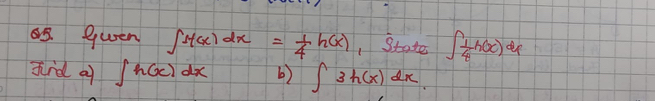 Q5. Given ∫H(x) dx = 1/4 h(x), State ∫1/8 h(x) dx
Find a) ∫h(x) dx b) ∫ 3 h(x) dx.